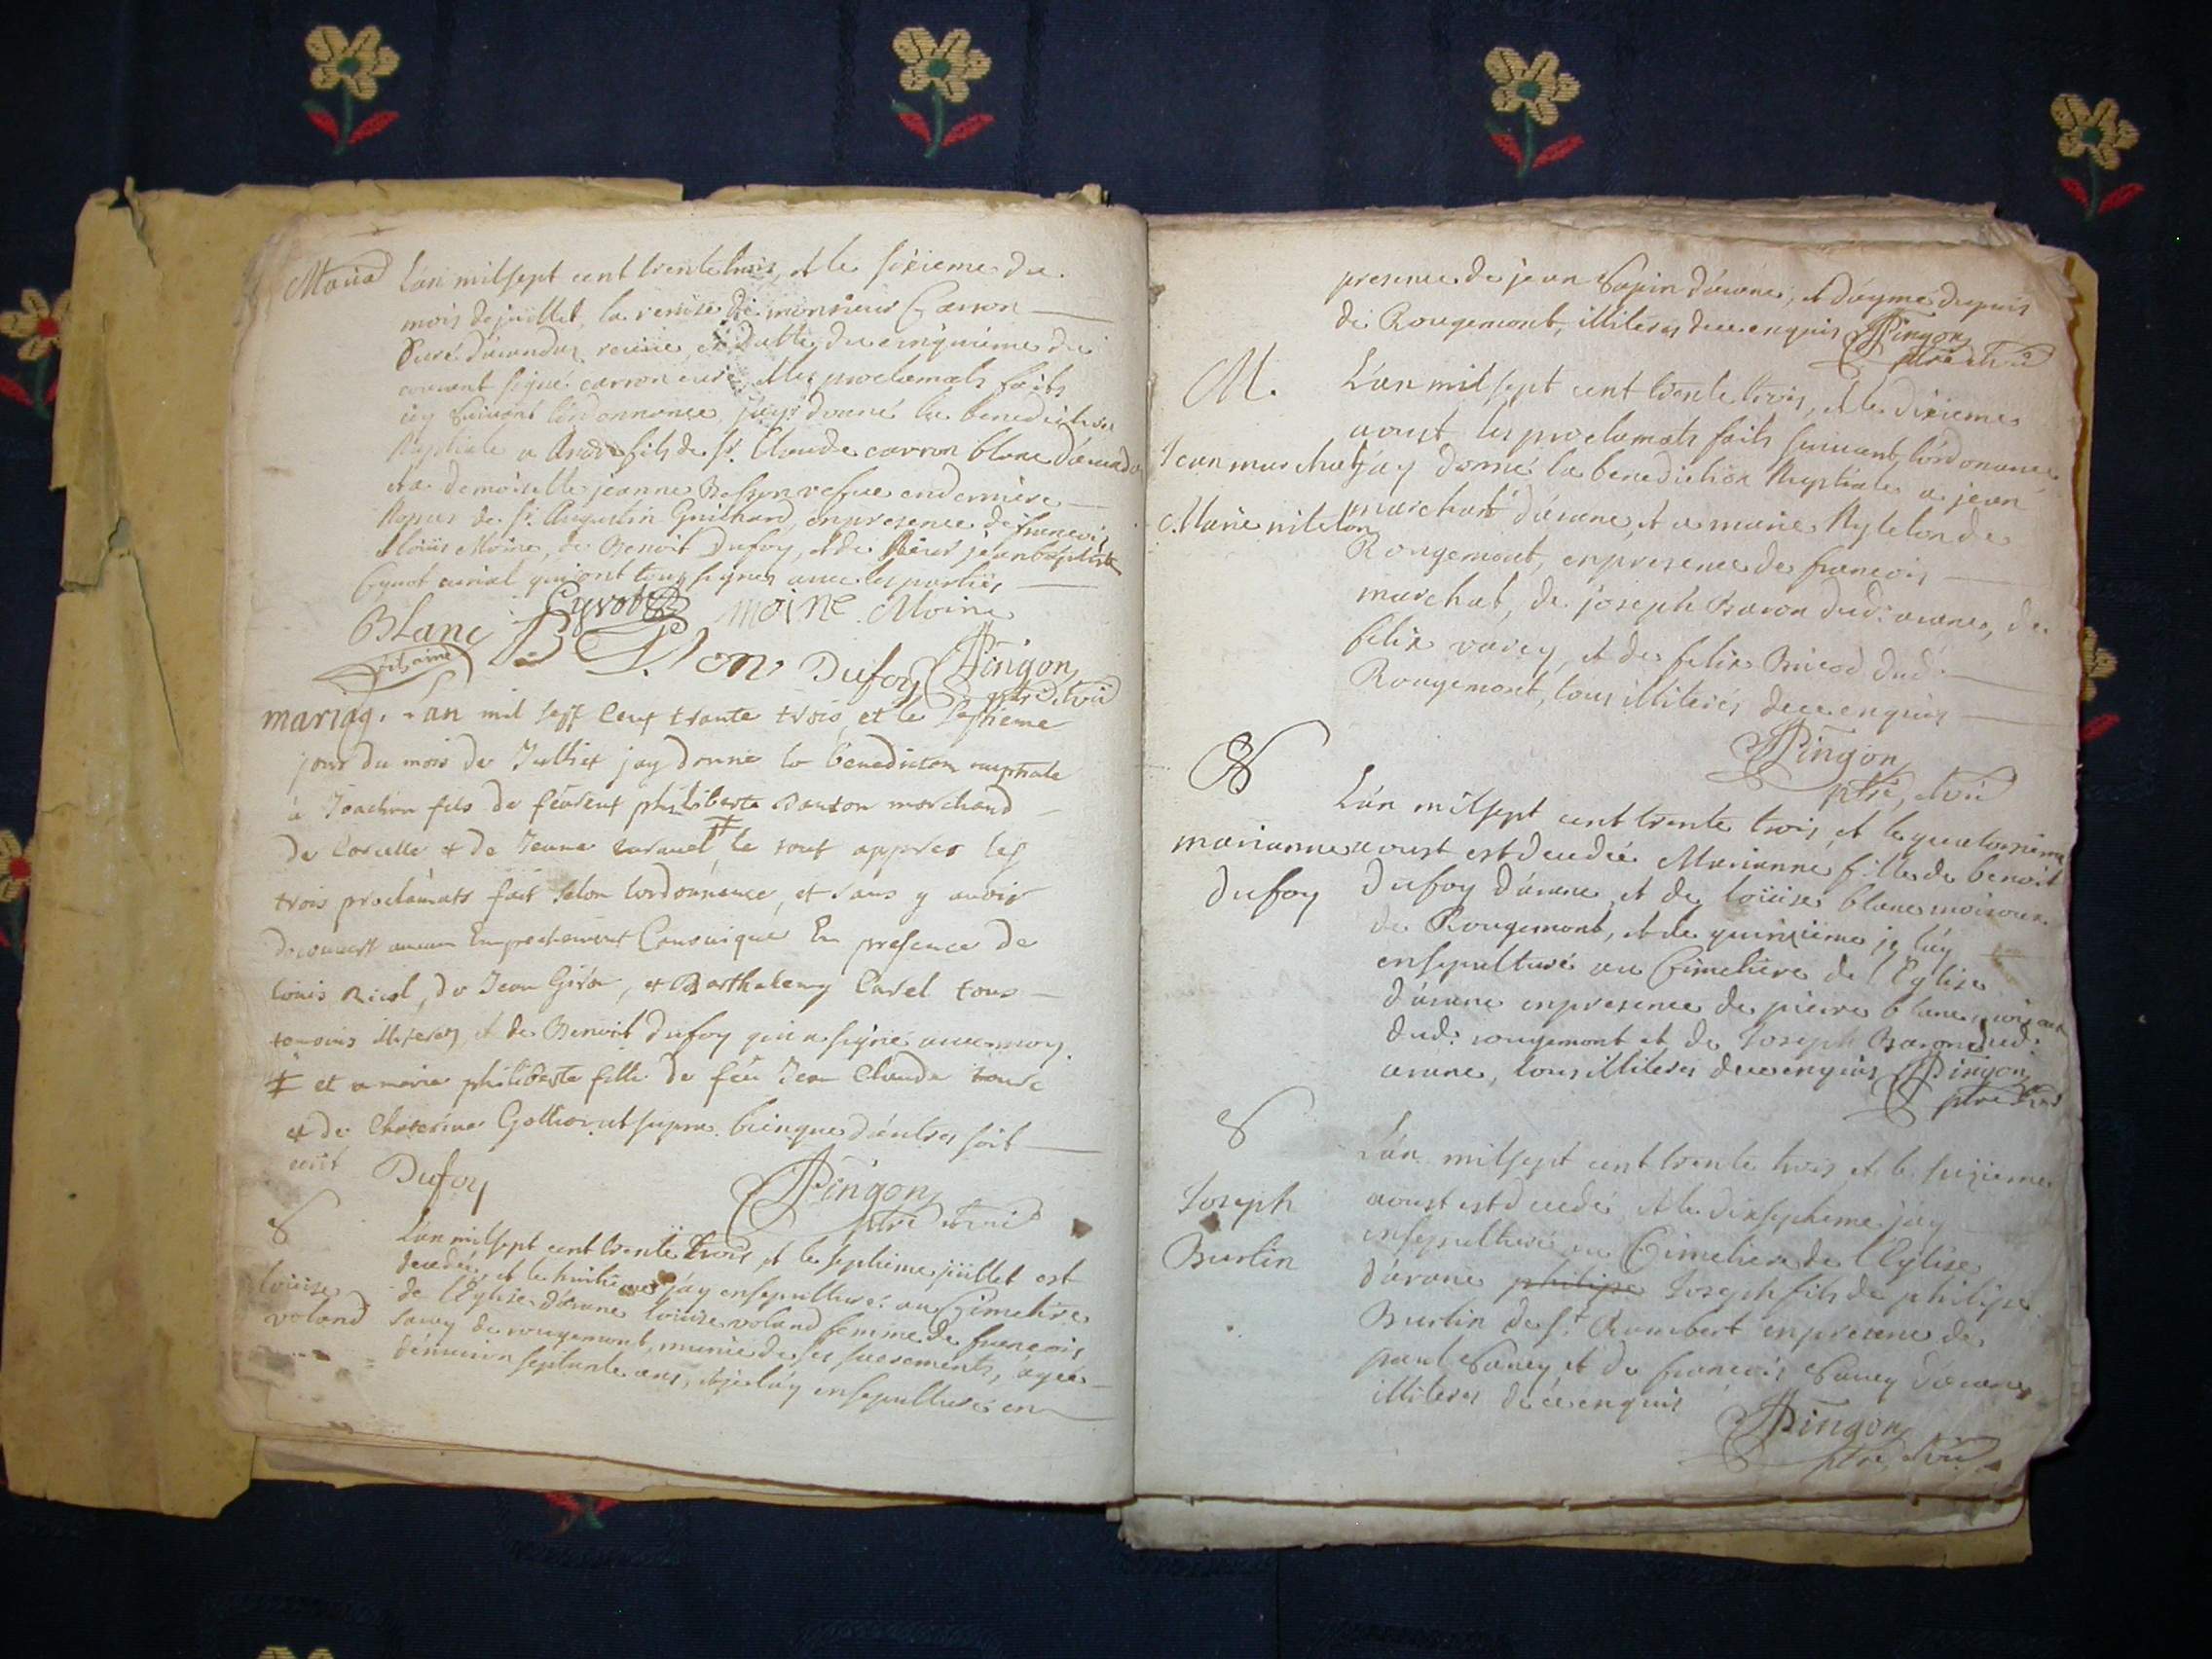 Mariad L'an mil sept cent trente trois, et le sixieme du
mois de juillet, la remise de monsieur Carron
Curé d'arandas receüe, en datte du cinquieme du
courant signé carron curé, et les proclamats faits
icy suivant l'ordonnance, j'ay donné la benediction
Nuptiale a fils de Sr. Claude carron blanc d'arandas
et a demoiselle jeanne Besson vefue en dernieres
Nopces de Sr. Augustin Guichard, en presence de francois
Louis Moine, de Benoit Dufoy, et de Sieur jean baptiste
Cyvot curial qui ont tous signes avec les parties
Blanc Cyvot moine Moine
B Dufoy Pingon
ptre et curé
mariag. L'an mil sept cent trante trois et le septieme
jour du mois de Julliet jay donné la benediction nuptiale
à Joachim fils de feu philiberte marchand
de Corcelle et de Jeanne le tout apprés les
trois proclamats fait selon lordonnance, et sans y avoir
decouvert aucun Empechement Canonique En presence de
louis Ricol, de Jean Giron, et Barthelemy Carel tous
temoins illiteres, et de Benoit Dufoy qui a signé avec moy.
‡ et a marie philiberte fille de feu Jean Claude
et de Chaterine ut supra. bien que d'autres soit
ecrit Dufoy Pingon
ptre et curé
S L'an mil sept cent trente trois et le septieme juillet est
decedée, et le huitieme j'ay ensepulturé au Cimetiere
louise de l'Eglise d'arane louise voland femme de francois
voland Savey de rougemont, munie de ses sacrements, agée
d'environ septante ans, et je l'ay ensepulturé en
presence de jean Sapin d'arane, et d'ayme dupuis
de Rougemont, illiteres de ce enquis Pingon
ptre et curé
M. L'an mil sept cent trente trois, et le dixieme
aoust les proclamats faits suivant l'ordonance
Jean marchat j'ay donné la benediction Nuptiale a jean
marchat d'arane, et a marie Nyleton de
Marie nileton
Rougemont, en presence de francois
marchat, de joseph Baron dud. arane, de
felix varey, et de felix dud.
Rougemont, tous illiterés de ce enquis
Pingon
ptre, et curé
S
L'an mil sept cent trente trois, et le quatorzieme
marianne aoust est decedée Marianne fille de benoit
Dufoy Dufoy d'arane, et de loüise blanc moisoux
de Rougemont, et le quinzieme je l'ay
ensepulturé au Cimetiere de l'Eglise
d'arane en presence de pierre blanc
dud. rougemont et de Joseph Baron dud.
arane, tous illiteres de ce enquis Pingon
ptre et curé
S
L'an mil sept cent trente trois et le seizieme
Joseph aoust est decedé et le dixseptieme j'ay
ensepulturé au Cimetiere de l'Eglise
Burlin d'arane philipe Joseph fils de philipe
Burlin de St. Rambert en presence de
paul Savey et de francois Savey d'arane
illiteres de ce enquis
Pingon
ptre, et curé